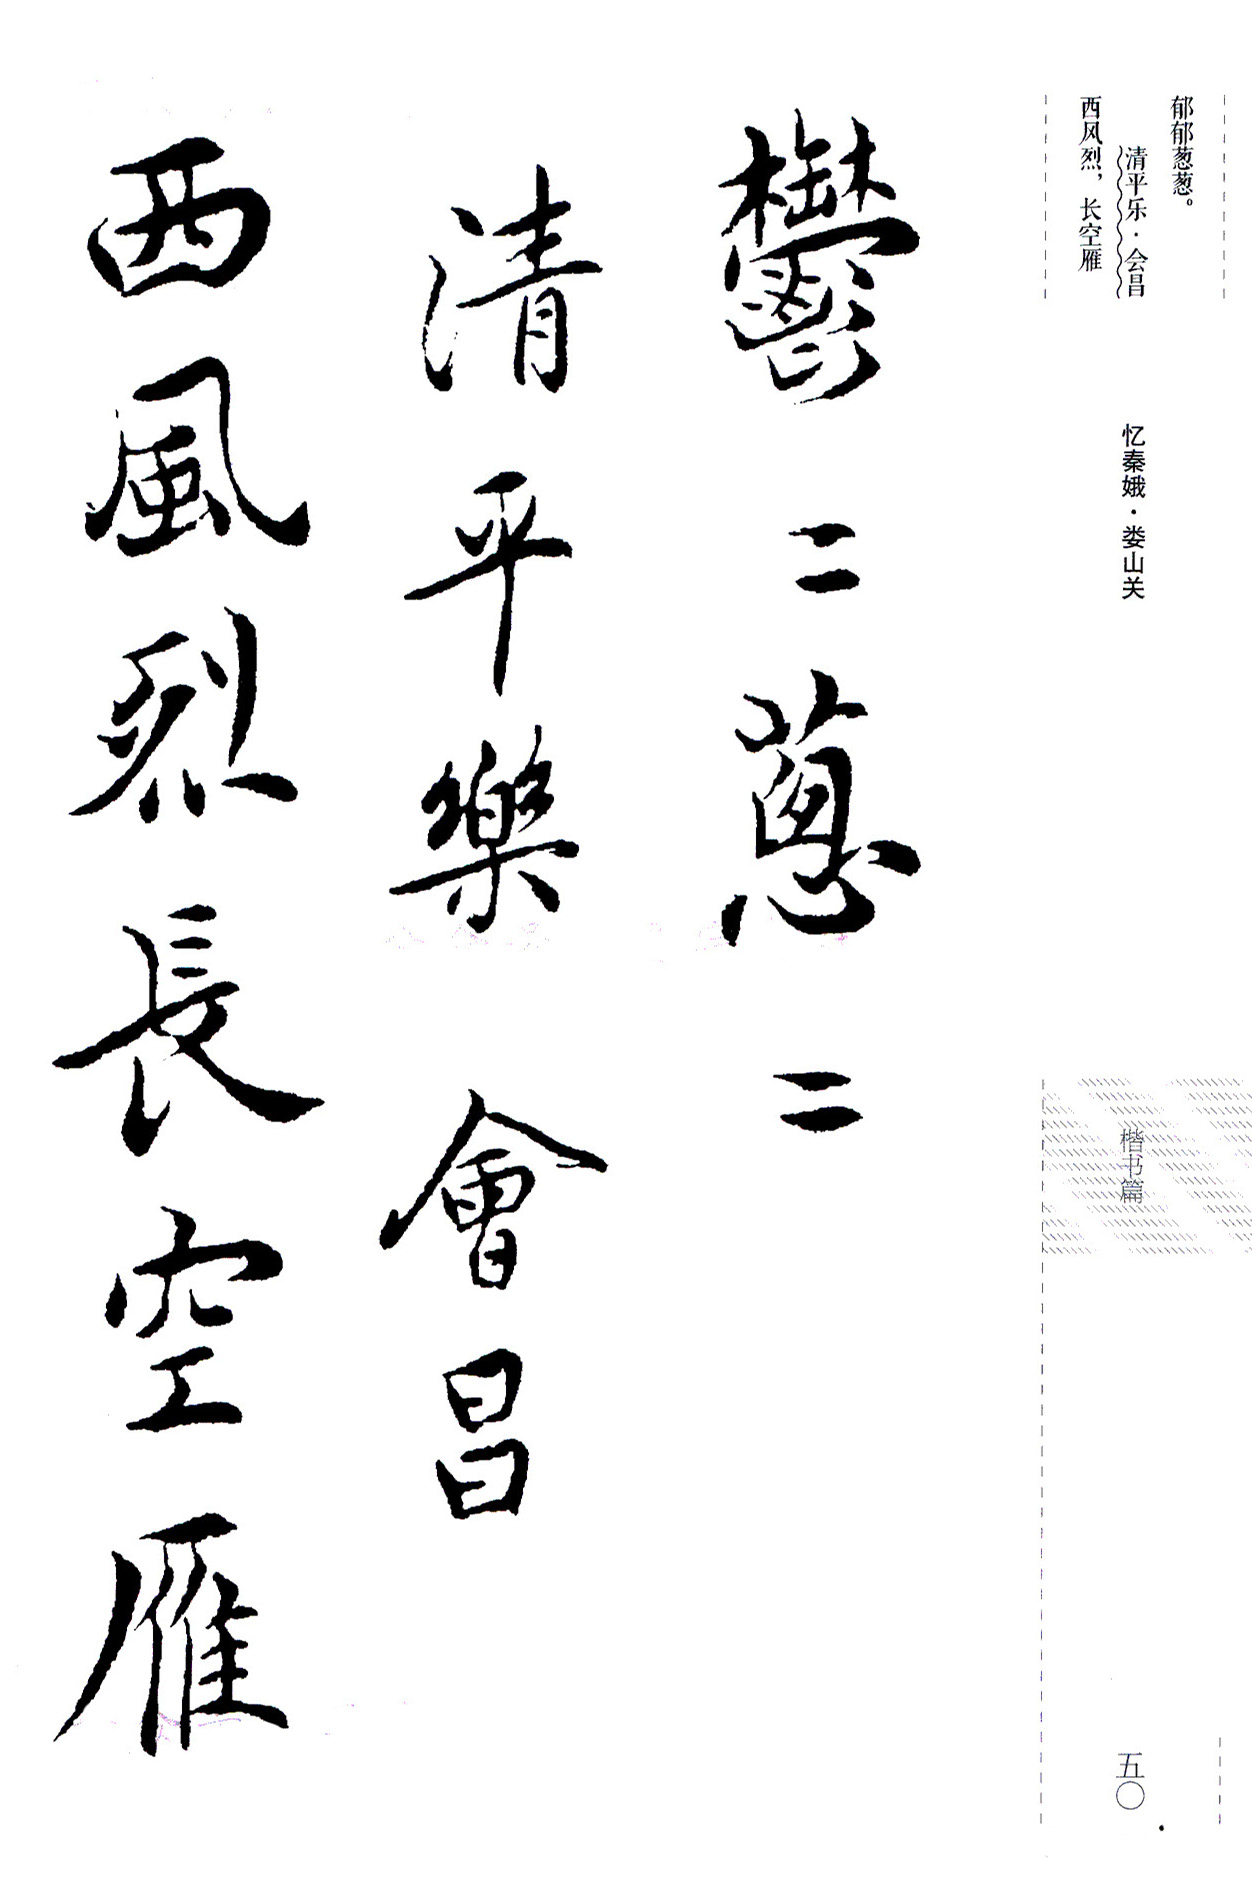 郁郁葱葱。
清平乐·会昌
西风烈，长空雁
忆秦娥·娄山关
楷书篇
五〇
鬱二蔥二
清平樂 會昌
西風烈長空雁